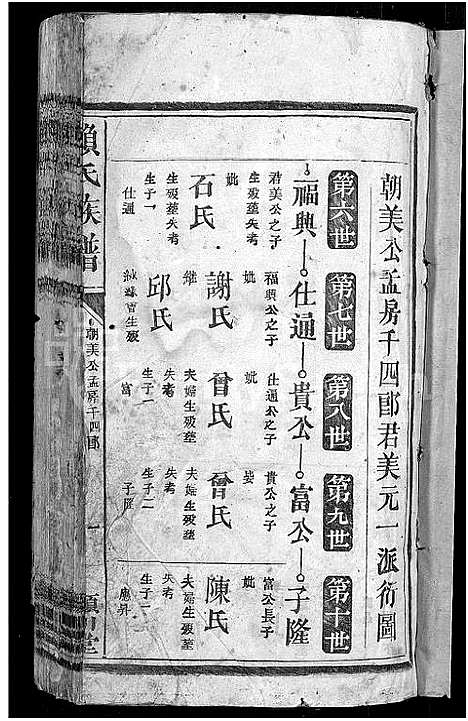 朝美公孟房千四郎君美元一派衍圖
第六世
第七世
第八世
第九世
第十世
福興
仕通
貴公
富公
子隆
君美公之子
生殁墓失考
妣
石氏
生殁墓失考
生子一
仕通
福興公之子
妣
謝氏
繼
邱氏
生殁
仕通公之子
妣
曾氏
夫婦生殁墓
失考
生子一
富
貴公之子
妣
曾氏
夫婦生殁墓
失考
生子二
子隆
富公長子
妣
陳氏
夫婦生殁墓
失考
生子一
應昇
賴氏族譜
朝美公孟房千四郎
一